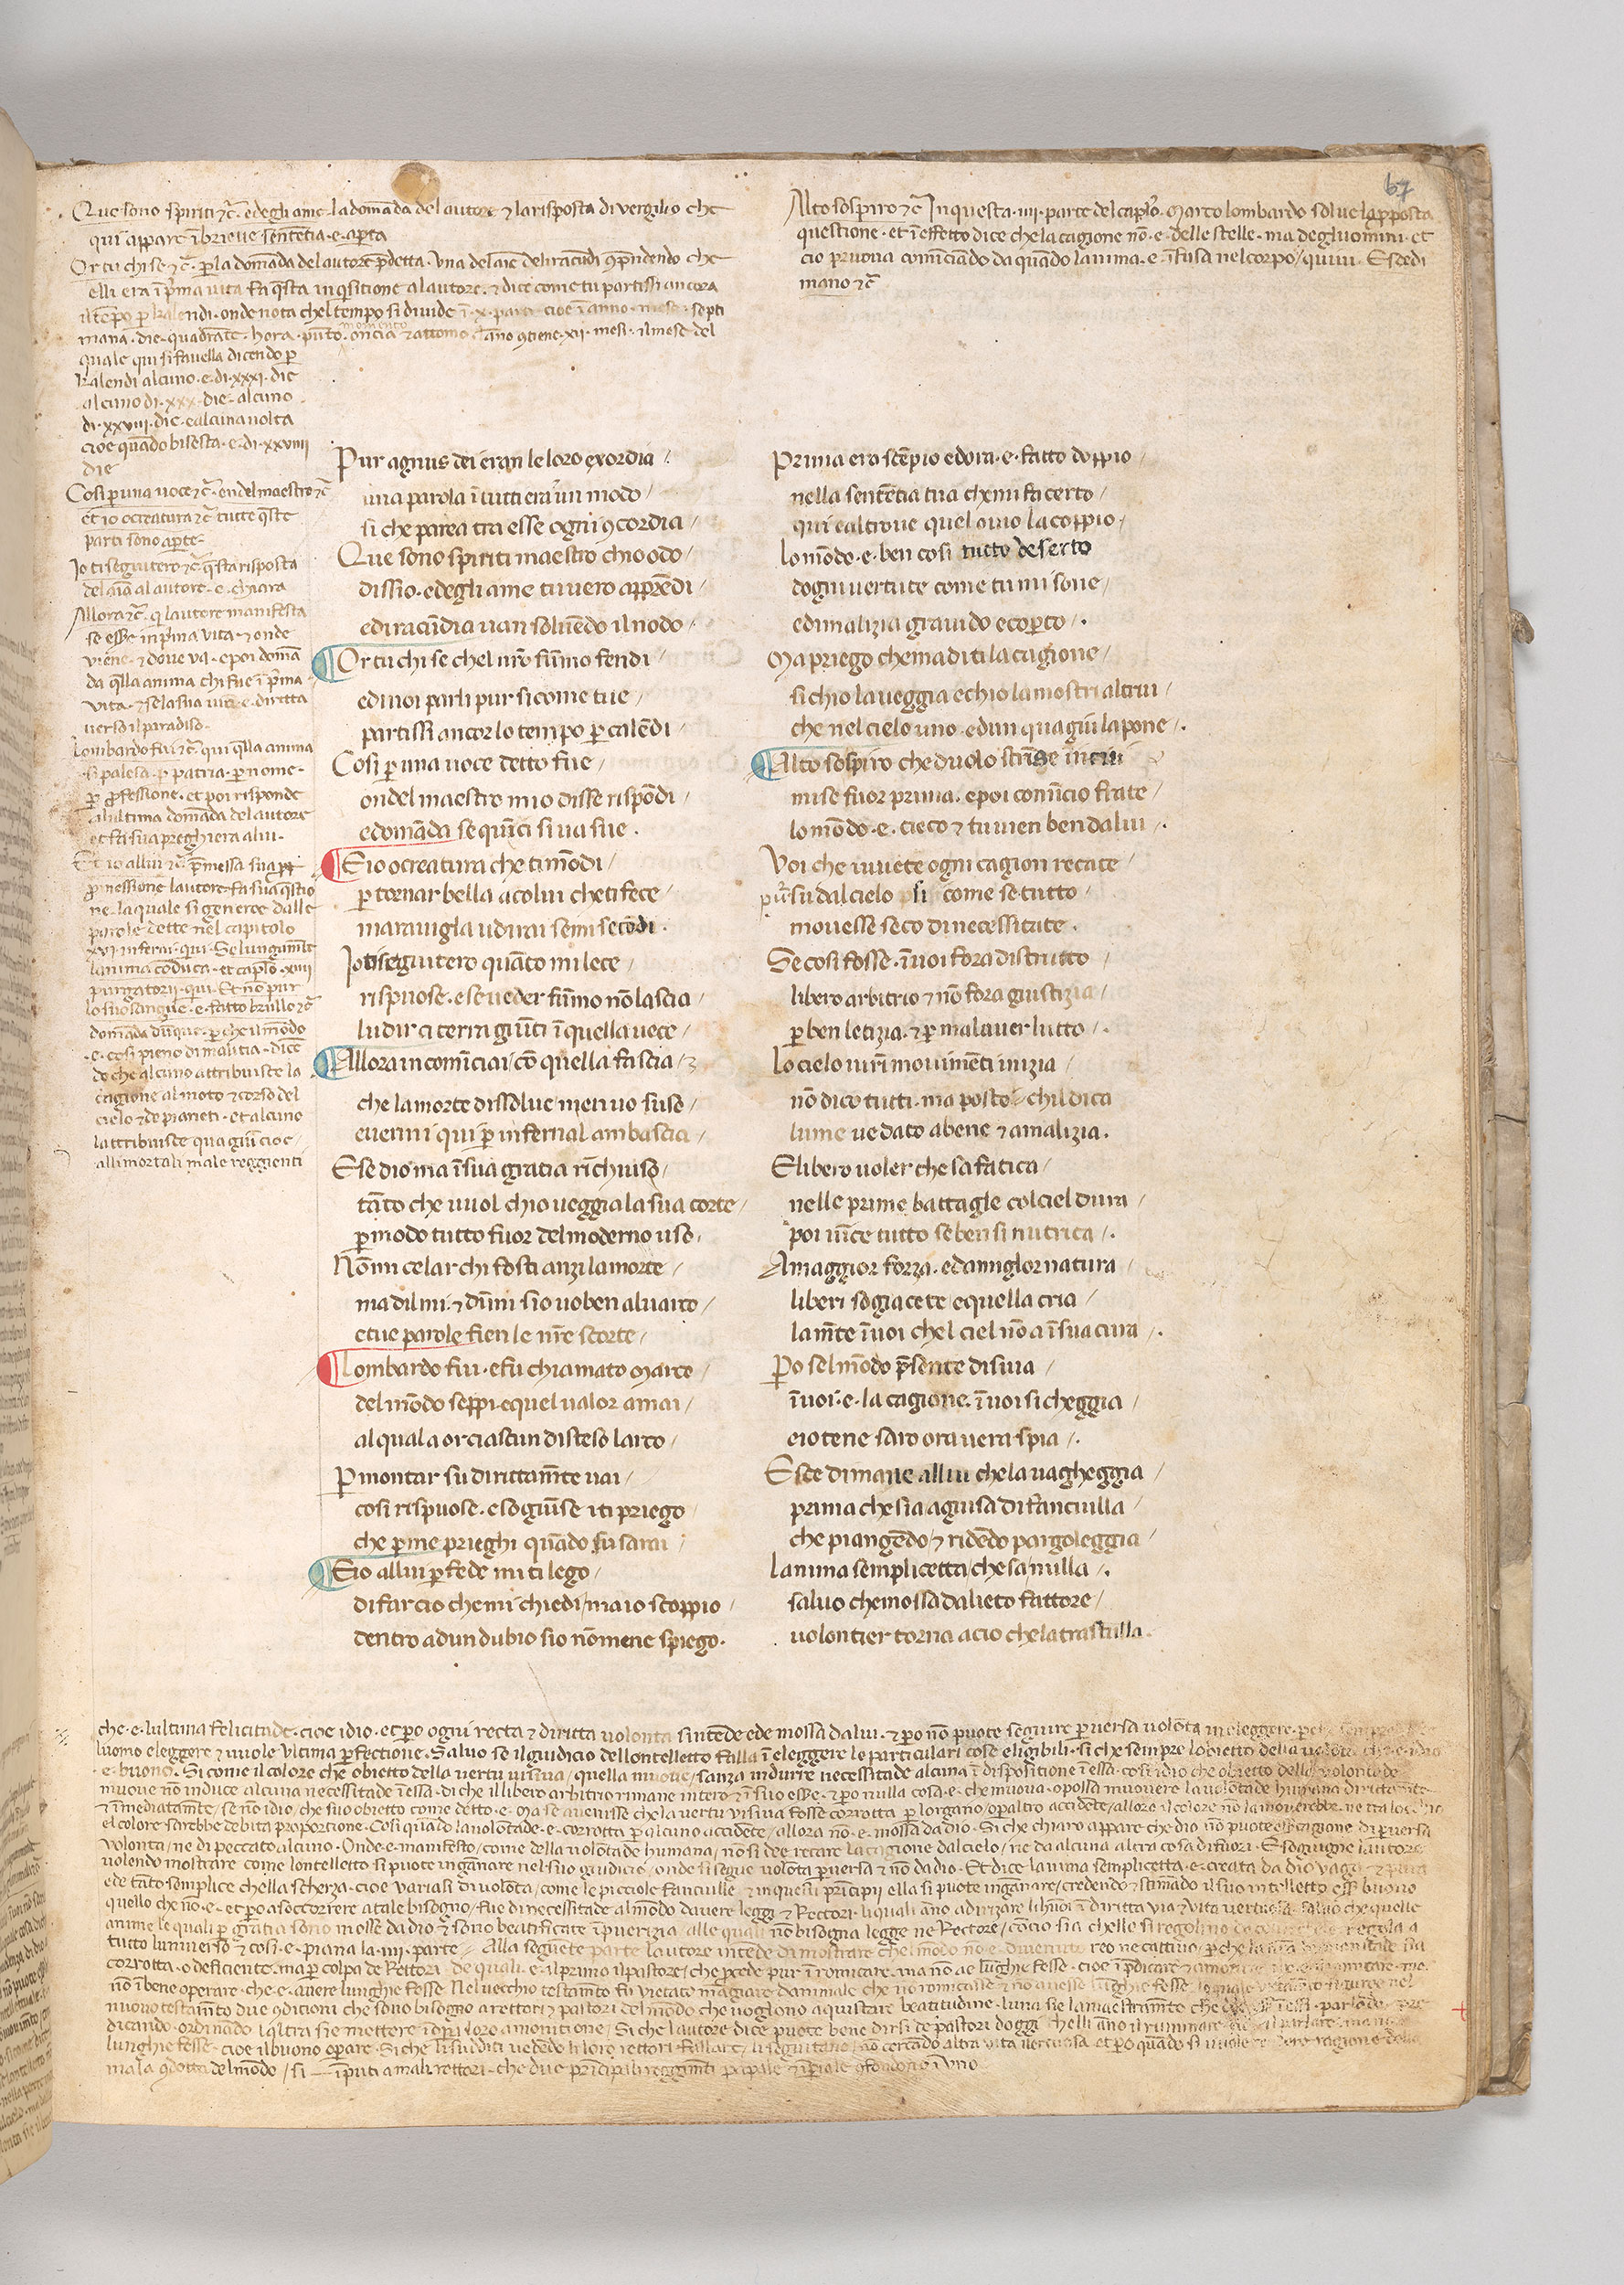 67
Que sono spiriti ⁊c̄. edegli ame. la domāda del autore ⁊ la risposta di vergilio che
qui appare ī brieue sentētia .e. aperta
Or tu chi se ⁊c̄. ꝑ la domāda del autore p̄detta. vna del aīe deli iracūdi ꝯp̄ndendo che
elli era ī p̄ma vita fa q̄sta inquisitione al autore. ⁊ dice come tu partissi ancora
il tēpo ꝑ kalendi. onde nota chel tempo si diuide ī .x. parti cioe ī anno. mese. septi
mana. die. quadrāte. hora. pūto. momento oncia ⁊ attomo. āno ꝯtiene .xii. mesi. il mese del
quale qui si fauella dicendo ꝑ
kalendi alcuno .e. di .xxxi. die
alcuno di .xxx. die. alcuno
di .xxviii. die. ealcuna uolta
cioe quādo bisesta .e. di .xxviiii
die
Cosi ꝑ una uoce ⁊c̄. ondel maestro ⁊c̄
et io o creatura ⁊c̄ tutte q̄ste
parti sono aꝑte.
Io ti seguitero ⁊c̄ q̄sta risposta
del aīa al autore .e. chiara
Allora ⁊c̄. q̄ lautore manifesta
se esse in p̄ma vita. ⁊ onde
viene. ⁊ doue va. epoi domā
da q̄lla anima chi fue ī p̄ma
vita. ⁊ se la sua via .e. diretta
uerso il paradiso.
Lombardo fui ⁊c̄. qui q̄lla anima
si palesa. ꝑ patria. ꝑ nome.
ꝑ ꝓfessione. et poi risponde
al ultima domāda del autore
et fa sua preghiera a lui.
Et io a llui ⁊c̄ p̄messa sua
ꝓmessione lautore fa sua q̄stio
ne. la quale si genere dalle
parole dette nel capitolo
xvi inferni. qui. Se lungam̄te
lanima cōduca. et cap̄lo .xiiii
purgatorii. qui. Et nō pur
lo suo sangue .e. fatto brullo ⁊c̄
domāda dūque. ꝑ che il mōdo
.e. cosi pieno di malitia. dicē
do che alcuno attribuisce la
cagione al moto ⁊ corso del
cielo ⁊ de pianeti. et alcuno
lattribuisce qua giu cioe
alli mortali male reggienti
Pur agnus dei eran le loro exordia
una parola ī tutti era ⁊ un modo
si che parea tra esse ogni ꝯcordia
Que sono spiriti maestro chio odo
dissio. edegli ame tu uero apprēdi
ed iracūdia uan soluēdo il nodo
Or tu chi se chel nr̄o fūmo fendi
edi noi parli pur si come tue
partissi ancor lo tempo ꝑ calēdi
Cosi ꝑ una uoce detto fue
ondel maestro mio disse rispōdi
edomāda se quīci si ua sue
E io o creatura che ti mōdi
ꝑ tornar bella a colui che ti fece
marauigla udirai se mi secōdi
Io ti seguitero quāto mi lece
rispuose. e se ueder fūmo nō lascia
ludir ci terra giūti ī quella uece
Allora incomīciai cō quella fascia
che la morte dissolue men uo suso
euenni qui ꝑ infernal ambascia
E se dio ma ī sua gratia rīchiuso
tāto che uuol chio ueggia la sua corte
ꝑ modo tutto fuor del moderno uso
Nō mi celar chi fosti anzi la morte
ma dilmi. ⁊ dīmi sio uo ben al uarco
e tue parole fien le nr̄e scorte
Lombardo fui. e fu chiamato marco
del mōdo seppi. equel ualor amai
al quale a or ciascun disteso larco
P̱ montar su dirittam̄te uai
cosi rispuose. e sogiūse i ti priego
che ꝑ me prieghi quādo su sarai
E io a llui ꝑ fede mi ti lego
di far cio che mi chiedi ma io scoppio
dentro ad un dubio sio nō me ne spiego
Alto sospiro ⁊c̄ In questa .iiii. parte del cap̄lo. Marco lombardo solue la p̄posta
questione. et ī effetto dice che la cagione nō .e. delle stelle. ma degluomini. et
cio pruoua comīciādo da quādo lanima .e. īfusa nel corpo / quiui. Esce di
mano ⁊c̄
Prima era scēpio edora .e. fatto doppio
nella sentētia tua che mi fa certo
qui e altroue quel ouio la coppio
Lo mōdo .e. ben cosi tutto deserto
dogni uertute come tu mi sone
edi malizia grauido e coꝑto
Ma priego che maditi la cagione
si chio la ueggia e chio la mostri altrui
che nel cielo uno. ed un qua giu la pone
Alto sospiro che duolo strīse in
mise fuor prima. epoi comīcio frate
lo mōdo .e. cieco ⁊ tu uien ben da lui
Voi che uiuete ogni cagion recate
pur su dal cielo si come se tutto
mouesse seco di necessitate
Se cosi fosse. ī uoi fora distrutto
libero arbitrio ⁊ nō fora giustizia
ꝑ ben letizia. ⁊ ꝑ mal auer lutto
Lo cielo i ur̄i mouimēti inizia
nō dico tutti. ma posto chil dica
lume ue dato a bene ⁊ a malizia
E libero uoler che sa fatica
nelle prime battagle col ciel dura
poi uīce tutto se ben si nutrica
A maggior forza. ed a miglor natura
liberi sogiacete e quella cria
la mēte ī uoi chel ciel nō a ī sua cura
Po sel mōdo p̄sente disuia
ī uoi .e. la cagione. ī uoi si cheggia
e io tene saro ora uera spia
Esce di mane a llui che la uagheggia
prima che sia a guisa di fanciulla
che piangēdo ⁊ ridēdo pargoleggia
Lanima semplicetta che sa nulla
saluo che mossa da lieto fattore
uolontier torna a cio che la trastulla
che .e. lultima felicitade. cioe idio. et ꝑo ogni recta ⁊ diritta uolonta sintēde ede mossa da lui. ⁊ ꝑo nō puote seguire ꝑuersa uolōta
luomo eleggere ⁊ uuole ultima ꝑfectione. Saluo se il giudicio dellontelletto falla ī eleggere le particulari cose eligibili. si che sempre lobietto della
.e. buono. Si come il colore che obietto della vertu uisiua / quella muoue / sanza indurre necessitade alcuna ī dispositione ī essa. cosi idio che obietto della
muoue nō induce alcuna necessitade ī essa. di che il libero arbitrio rimane intero ⁊ ī suo esse. ⁊ ꝑo nulla cosa .e. che muoua. o possa muouere la uolōtade humana
⁊ īmediatam̄te / se nō idio / che suo obietto come detto .e. Ma se auenisse che la uertu uisiua fosse corrotta ꝑ lorgano / o ꝑ altro accidēte / allora il colore nō la mouerebbe.
el colore sarebbe debita proportione. Cosi quādo la uolontade .e. corrotta ꝑ alcuno accidēte / allora nō .e. mossa da dio. Si che chiaro appare che dio nō puote ess̄ cagione di ꝑuersa
uolonta / ne di peccato alcuno. Onde .e. manifesto / come della uolōtade humana / nō si dee recare la cagione dal cielo / ne da alcuna altra cosa di fuori. E sogiugne lautore
uolendo mostrare come lontelletto si puote īgānare nel suo giudicio / onde si segue uolōta ꝑuersa ⁊ nō da dio. Et dice lanima semplicetta .e. creata da dio
ede tāto semplice chella scherza. cioe variasi di uolōta / come le picciole fanciulle. ⁊ in questi prīcipii ella si puote ingānare / credendo ⁊ stimādo il suo intelletto esse buono
quello che nō .e. et ꝑo a soccorrere a tale bisogno / fue di necessitade al mōdo dauere leggi ⁊ Rectori. li quali āno a dirizare li huoī ī diritta via ⁊ vita vertuosa. saluo che quelle
anime le quali ꝑ gratia sono mosse da dio ⁊ sono beatificate ī puerizia / alle quali nō bisogna legge ne Rectore / cōcio sia chelle si regolino
tutto luniuerso ⁊ cosi .e. piana la .iiii. parte. Alla seguēte parte lautore intēde di mostrare chel mōdo nō e diuenuto reo ne cattiuo / ꝑche
corrotta. o deficiente. ma ꝑ colpa de Rettori. de quali .e. il primo il pastore / che ꝓcede pur ī romicare. ma nō ae lūghie fesse. cioe ī p̄dicare
nō ī bene operare. che .e. auere lunghie fesse. Nel uecchio testam̄to fu vietato māgiare danimale che nō romicasse ⁊ nō auesse lūghie fesse
nuouo testam̄to due ꝯdicioni che sono bisogno a rettori ⁊ pastori del mōdo che uoglono aquistare beatitudine. luna sie lamaestram̄to che
dicando. ordinādo. laltra sie mettere ī oꝑa il loro amonitione. Si che lautore dice puote bene dirsi de pastori doggi chelli āno il ruminare
lunghie fesse. cioe il buono operare. Si che li suditi uedēdo li loro rettori fallare / li seguitano
mala ꝯdotta del mōdo / si īputi a mali rettori. che due prīcipali reggimēti